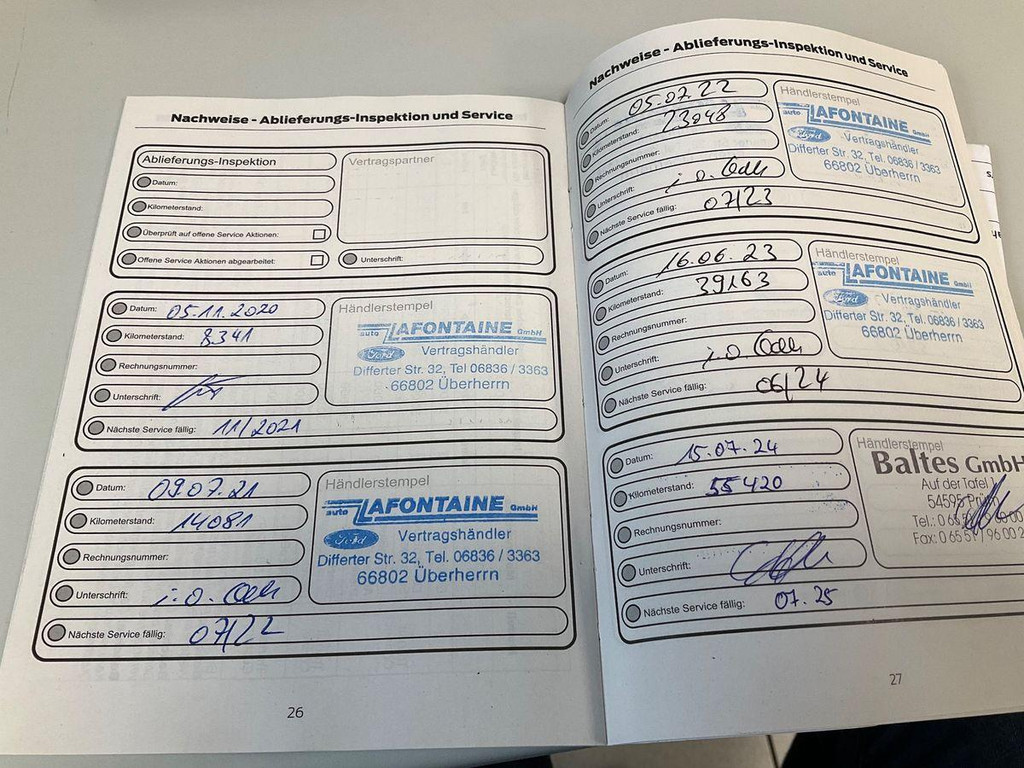 Nachweise - Ablieferungs-Inspektion und Service
Ablieferungs-Inspektion
Datum:
Kilometerstand:
Überprüft auf offene Service Aktionen:
Offene Service Aktionen abgearbeitet:
Vertragspartner
Unterschrift:
Datum: 05.11.2020
Kilometerstand: 8341
Rechnungsnummer:
Unterschrift:
Nächste Service fällig: 11/2021
Händlerstempel
auto LAFONTAINE GmbH
Ford Vertragshändler
Differter Str. 32, Tel 06836 / 3363
66802 Überherrn
Datum: 09.07.21
Kilometerstand: 14081
Rechnungsnummer:
Unterschrift: i.o.
Nächste Service fällig: 07/22
Händlerstempel
auto LAFONTAINE GmbH
Ford Vertragshändler
Differter Str. 32, Tel. 06836 / 3363
66802 Überherrn
26
Nachweise - Ablieferungs-Inspektion und Service
Datum: 05.07.22
Kilometerstand: 23048
Rechnungsnummer:
Unterschrift: i.o.
Nächste Service fällig: 07/23
Händlerstempel
auto LAFONTAINE GmbH
Ford Vertragshändler
Differter Str. 32, Tel. 06836 / 3363
66802 Überherrn
Datum: 16.06.23
Kilometerstand: 39163
Rechnungsnummer:
Unterschrift: i.o.
Nächste Service fällig: 06/24
Händlerstempel
auto LAFONTAINE GmbH
Ford Vertragshändler
Differter Str. 32, Tel. 06836 / 3363
66802 Überherrn
Datum: 15.07.24
Kilometerstand: 55420
Rechnungsnummer:
Unterschrift:
Nächste Service fällig: 07.25
Händlerstempel
Baltes GmbH
Auf der Tafel
54595
Tel.:
Fax:
27